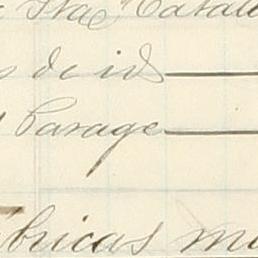 Sta Catal
s de id
Parage
abricas m